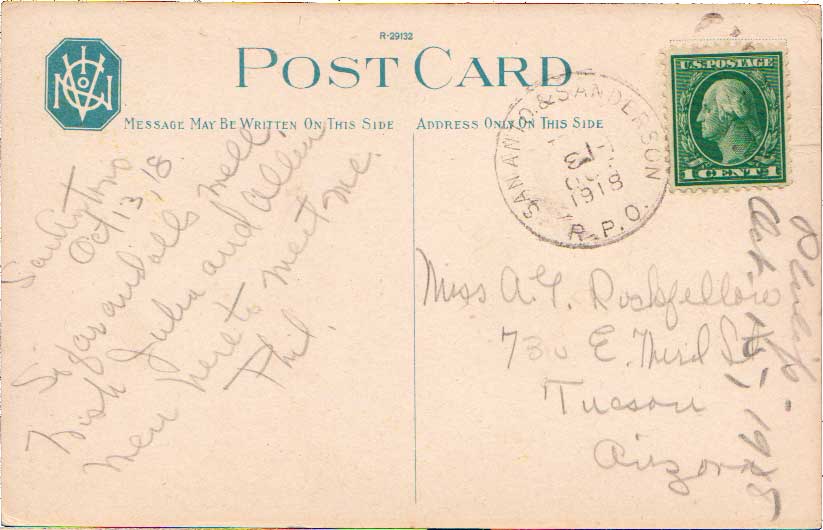 R-29132
POST CARD
MESSAGE MAY BE WRITTEN ON THIS SIDE
ADDRESS ONLY ON THIS SIDE
U.S. POSTAGE
1 CENT 1
SAN ANTO. & SANDERSON
1918
R.P.O.
San Antonio
Oct 13, 18
So far and all's well.
Wish Julia and Allen
were here to meet me.
Phil.
Miss A. G. Rockfellow
730 E. Third St
Tucson
Arizona
Philip.
Oct.